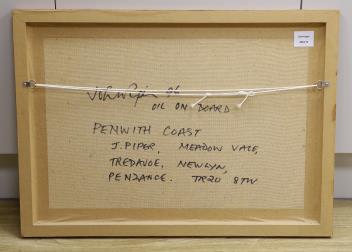 John Piper 96
OIL ON BOARD
PENWITH COAST
J. PIPER, MEADOW VALE,
TREDAVOE, NEWLYN,
PENZANCE. TR20 8TW